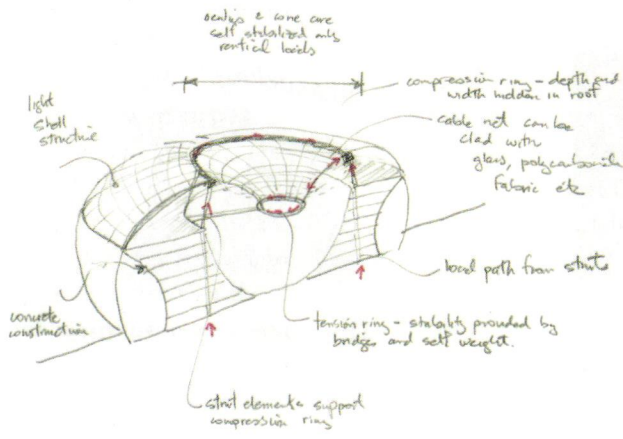 & cone are
self stabilized only
vertical loads
compression ring - depth and
width hidden in roof
light
shell
structure
cable net can be
clad with
glass, polycarbonate
fabric etc
load path from struts
concrete
construction
tension ring - stability provided by
bridges and self weight.
strut elements support
compression ring